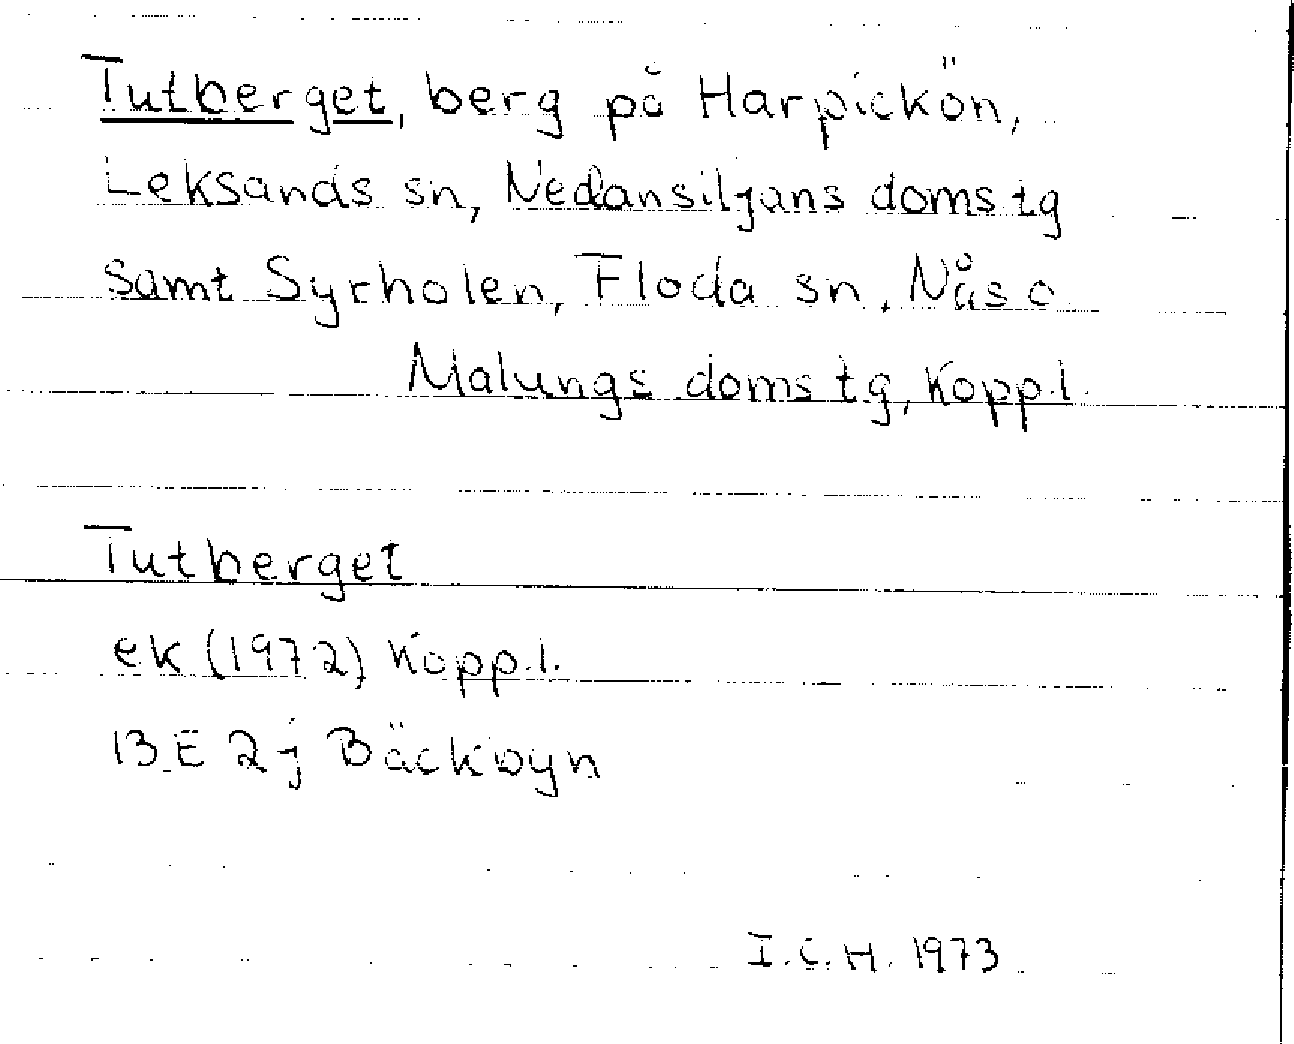 Tutberget, berg på Harpickön,
Leksands sn, Nedansiljans doms tg
samt Syrholen, Floda sn, Nås o
Malungs doms tg, Koppl.
Tutberget
ek (1972) Koppl.
13 E 2j Bäckbyn
I.C.H. 1973